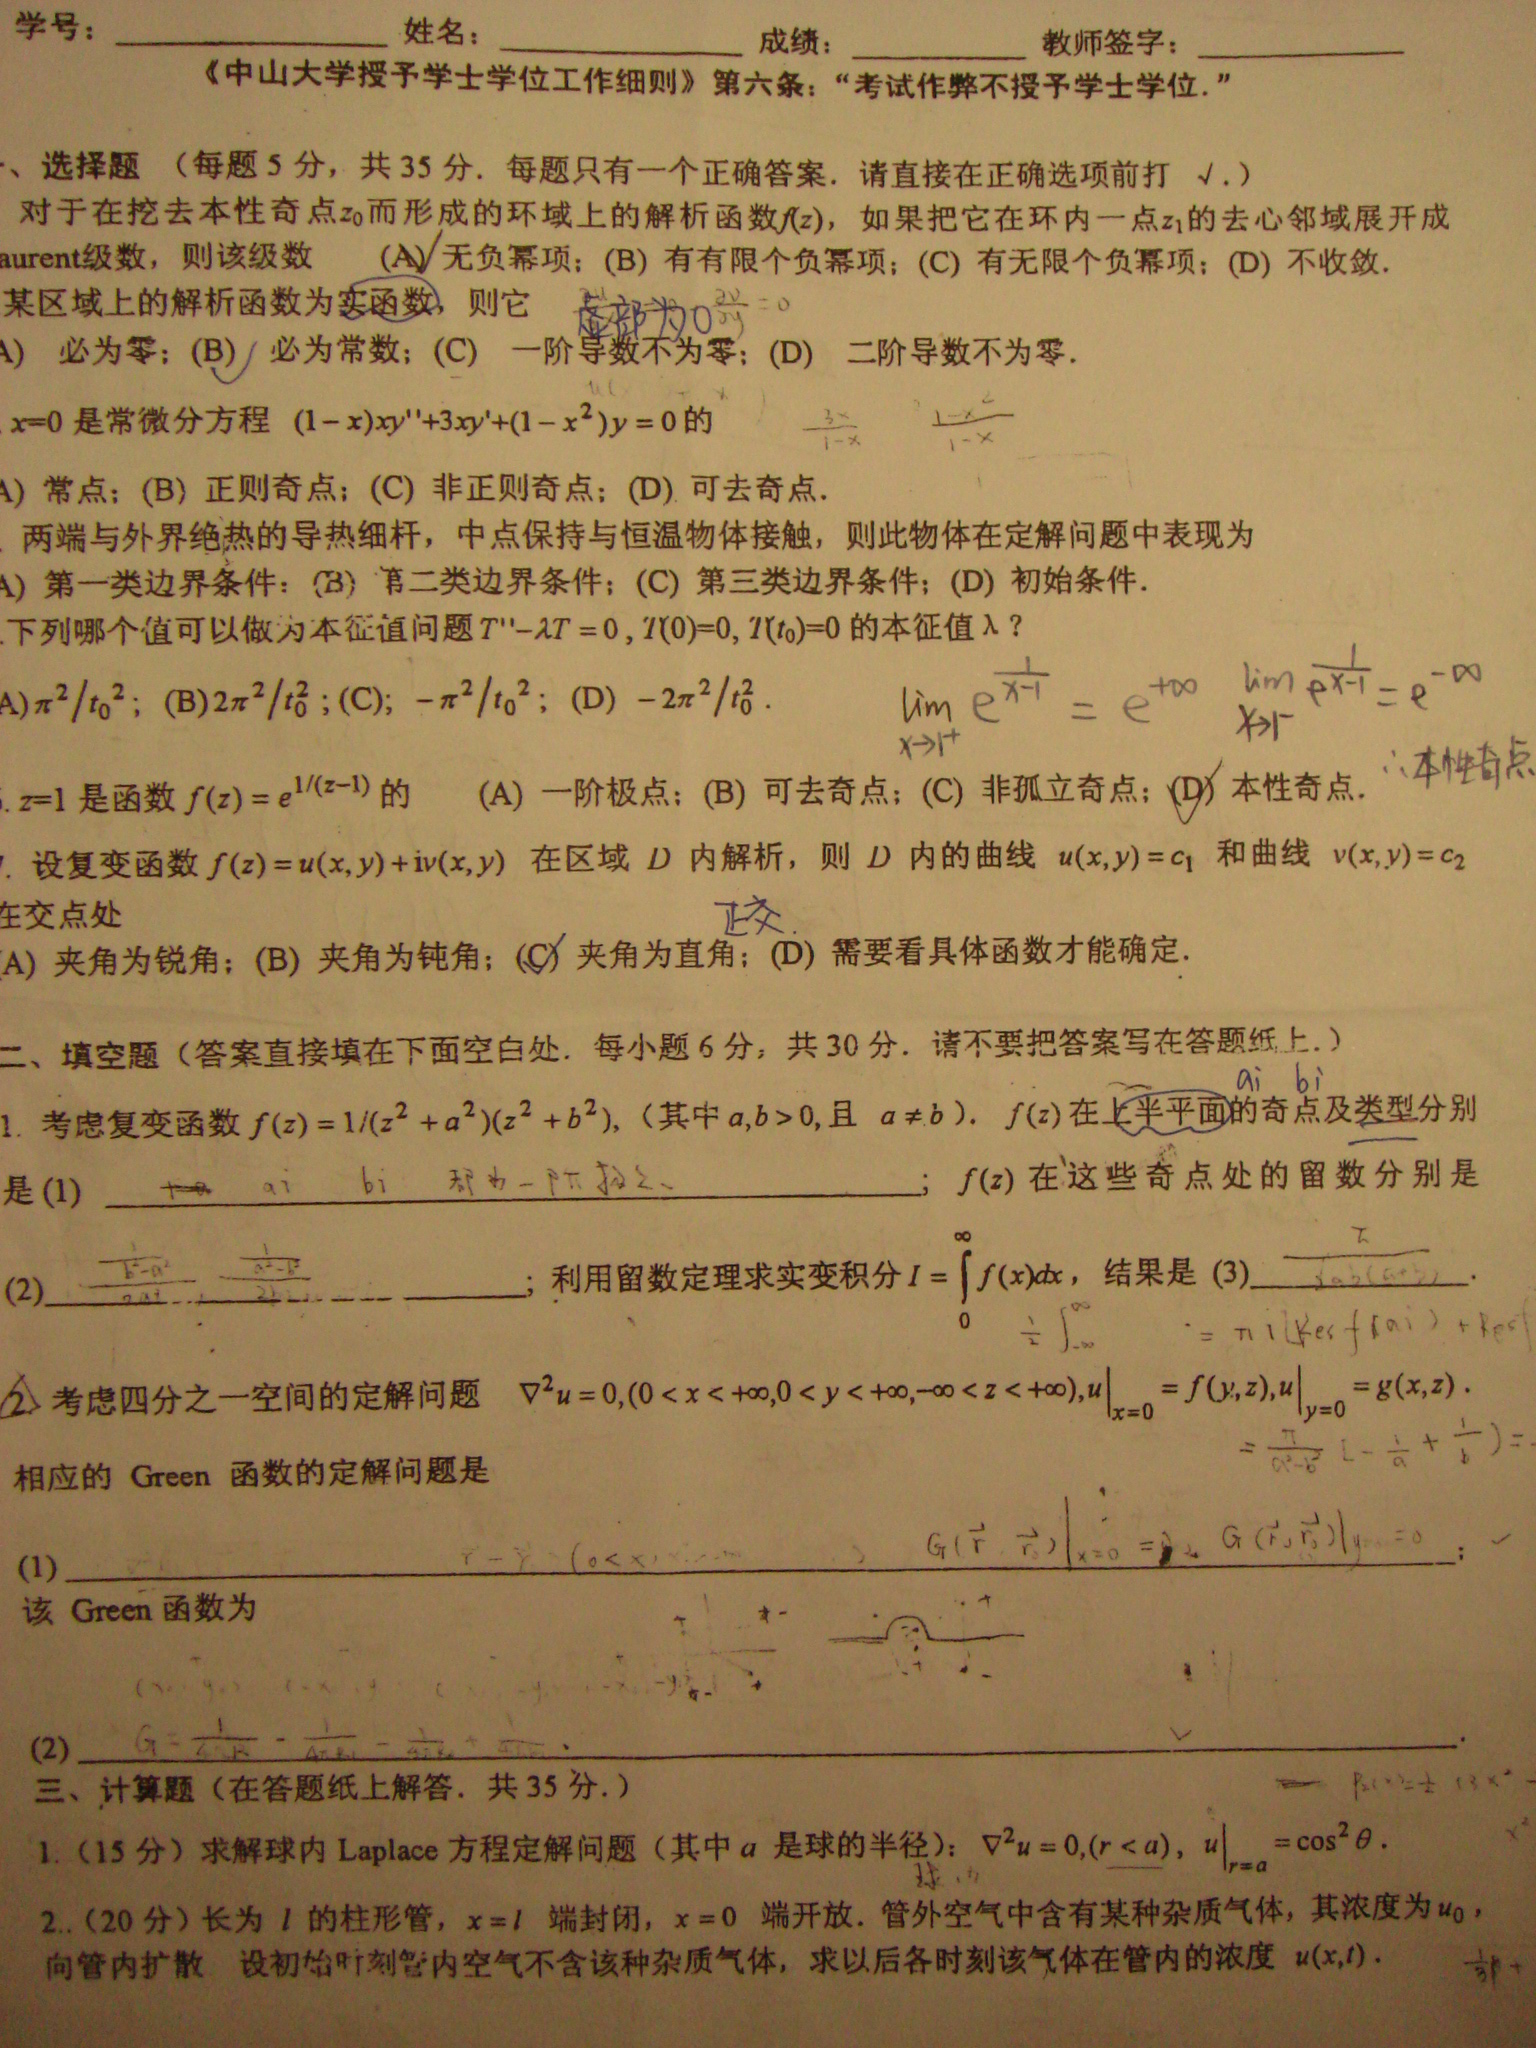 学号： 姓名： 成绩： 教师签字：
《中山大学授予学士学位工作细则》第六条：“考试作弊不授予学士学位.”
、选择题 （每题 5 分，共 35 分．每题只有一个正确答案．请直接在正确选项前打 √．）
对于在挖去本性奇点z₀而形成的环域上的解析函数f(z)，如果把它在环内一点z₁的去心邻域展开成
aurent级数，则该级数 (A)✓ 无负幂项；(B) 有有限个负幂项；(C) 有无限个负幂项；(D) 不收敛．
某区域上的解析函数为实函数，则它 虚部为0
A) 必为零；(B)✓ 必为常数；(C) 一阶导数不为零；(D) 二阶导数不为零．
x=0 是常微分方程 (1−x)xy''+3xy'+(1−x²)y=0 的 3x/(1-x) (1-x²)/(1-x)
A) 常点；(B) 正则奇点；(C) 非正则奇点；(D) 可去奇点．
两端与外界绝热的导热细杆，中点保持与恒温物体接触，则此物体在定解问题中表现为
A) 第一类边界条件：(B) 第二类边界条件；(C) 第三类边界条件；(D) 初始条件．
下列哪个值可以做为本征值问题T''−λT=0, T(0)=0, T(t₀)=0 的本征值 λ？
A) π²/t₀²； (B) 2π²/t₀²；(C)； −π²/t₀²； (D) −2π²/t₀²．
lim x→1⁺ e^{1/(x-1)} = e^{+∞} lim x→1⁻ e^{1/(x-1)} = e^{-∞}
∴本性奇点
. z=1 是函数 f(z)=e^{1/(z−1)} 的 (A) 一阶极点；(B) 可去奇点；(C) 非孤立奇点；(D)✓ 本性奇点．
. 设复变函数 f(z)=u(x,y)+iv(x,y) 在区域 D 内解析，则 D 内的曲线 u(x,y)=c₁ 和曲线 v(x,y)=c₂
在交点处 正交.
(A) 夹角为锐角；(B) 夹角为钝角；(C)✓ 夹角为直角；(D) 需要看具体函数才能确定．
二、填空题（答案直接填在下面空白处．每小题 6 分，共 30 分．请不要把答案写在答题纸上．）
ai bi
1. 考虑复变函数 f(z)=1/(z²+a²)(z²+b²),（其中 a,b>0, 且 a≠b）. f(z) 在上半平面的奇点及类型分别
是 (1) ai bi 都为一阶极点 ； f(z) 在这些奇点处的留数分别是
(2) ；利用留数定理求实变积分 I=∫₀^∞ f(x)dx，结果是 (3) .
½∫_{-∞}^{∞} = πi[Res f(ai) +
2. 考虑四分之一空间的定解问题 ∇²u=0,(0<x<+∞,0<y<+∞,−∞<z<+∞),u|x=0=f(y,z),u|y=0=g(x,z).
= π/(a²-b²) [-1/a + 1/b) =
相应的 Green 函数的定解问题是
(1) (0<x G(r⃗ r⃗₀)|x=0 = G(r⃗, r⃗₀)|y =0 ；
该 Green 函数为
(2) G= .
三、计算题（在答题纸上解答．共 35 分．）
1.（15 分）求解球内 Laplace 方程定解问题（其中 a 是球的半径）：∇²u=0,(r<a)， u|r=a=cos²θ．
2..（20 分）长为 l 的柱形管，x=l 端封闭，x=0 端开放．管外空气中含有某种杂质气体，其浓度为u₀，
向管内扩散 设初始时刻管内空气不含该种杂质气体，求以后各时刻该气体在管内的浓度 u(x,t)．